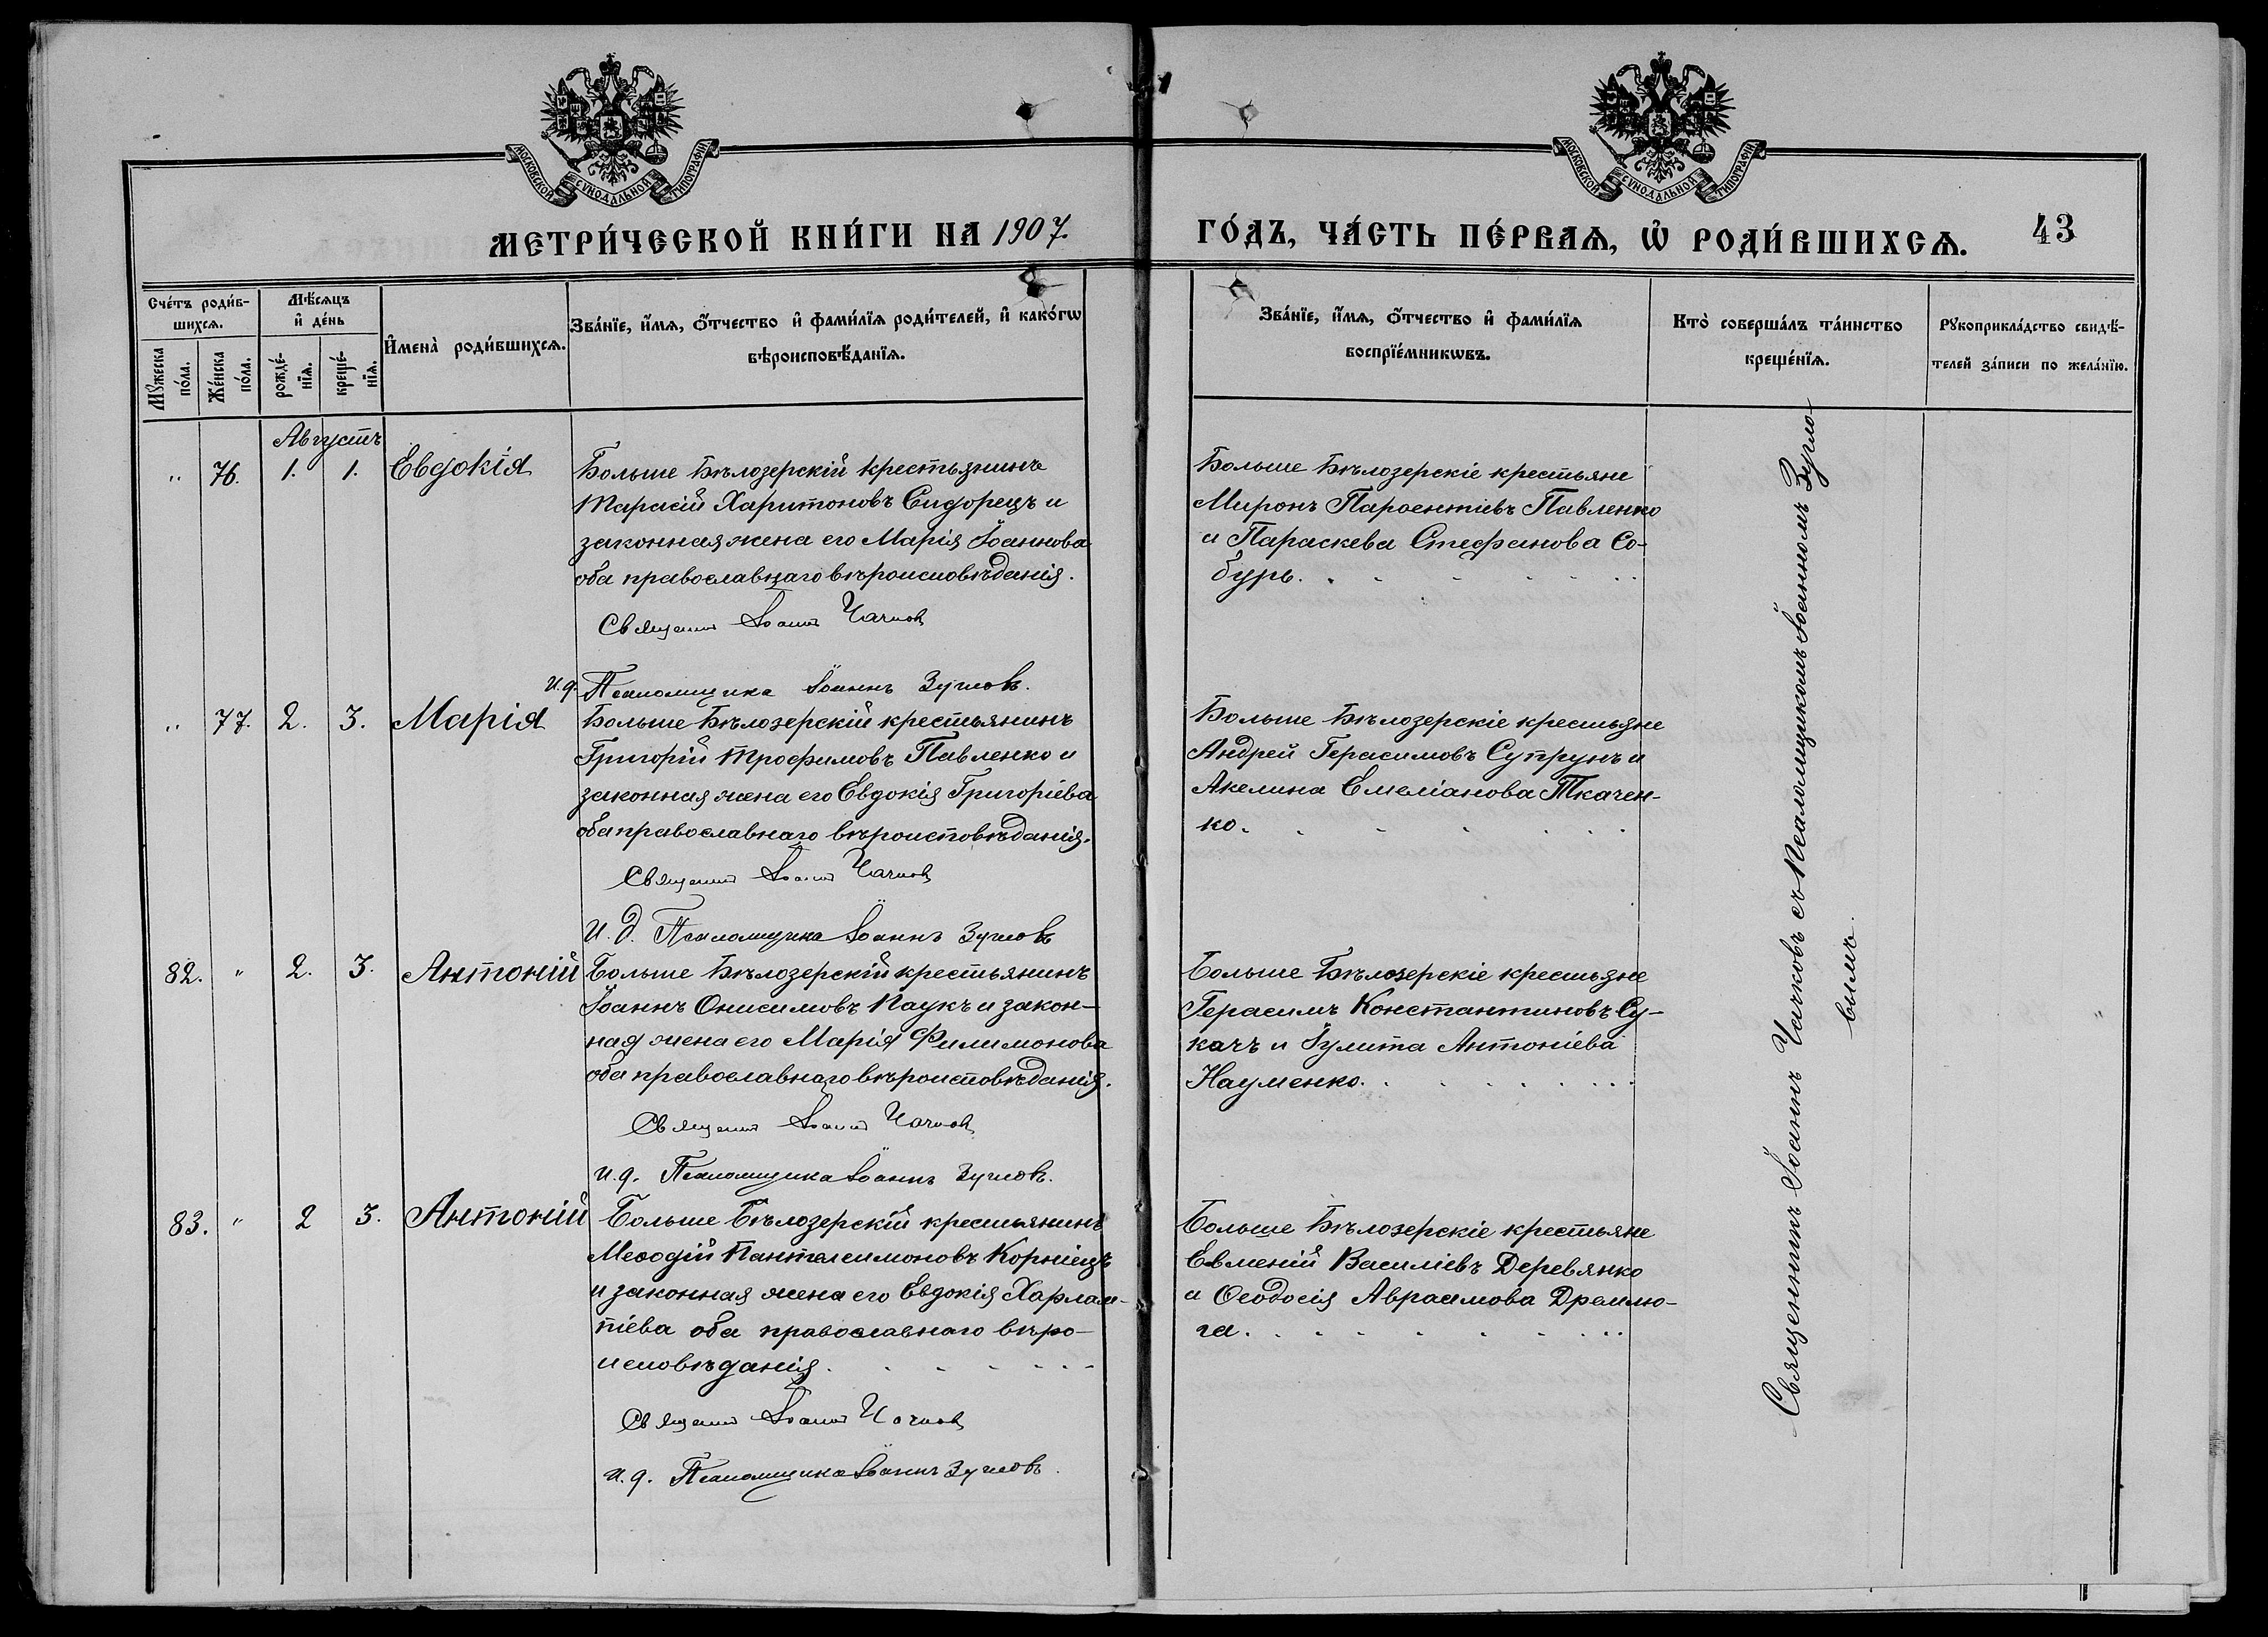 МОСКОВСКОЙ СѴНОДАЛЬНОЙ ТИПОГРАФІИ
МОСКОВСКОЙ СѴНОДАЛЬНОЙ ТИПОГРАФІИ
МЕТРИ́ЧЕСКОЙ КНИ́ГИ НА 1907.
ГО́ДЪ, ЧА́СТЬ ПЕ́РВАѦ, Ѡ҆ РОДИ́ВШИХСѦ.
43
Сче́тъ роди́в-
шихсѧ.
Мѣ́сѧцъ
и҆ де́нь
И҆мена̀ роди́вшихсѧ.
Зва́нїе, и҆́мѧ, ѻ҆́тчество и҆ фами́лїѧ роди́телей, и҆ како́гѡ
вѣроисповѣ́данїѧ.
Мꙋ́жеска
по́ла.
Же́нска
по́ла.
рожде́-
нїѧ.
креще́-
нїѧ.
Зва́нїе, и҆́мѧ, ѻ҆́тчество и҆ фами́лїѧ
воспрїе́мникѡвъ.
Кто̀ соверша́лъ та́инство
креще́нїѧ.
Рꙋкоприкла́дство свидѣ́-
телей за́писи по жела́нїю.
Августъ
" 76. 1. 1. Евдокія
Больше Бѣлозерскій крестьянинъ
Тарасій Харитоновъ Сидорецъ и
законная жена его Марія Іоаннова
оба православнаго вѣроисповѣданія.
Священникъ Іоаннъ Чачковъ
и.д. Псаломщика Іоаннъ Зугловъ.
Больше Бѣлозерскіе крестьяне
Миронъ Парѳентіевъ Павленко
и Параскева Стефанова Со-
буръ.
" 77. 2. 3. Марія
Больше Бѣлозерскій крестьянинъ
Григорій Трофимовъ Павленко и
законная жена его Евдокія Григоріева
оба православнаго вѣроисповѣданія.
Священникъ Іоаннъ Чачковъ
и.д. Псаломщика Іоаннъ Зугловъ
Больше Бѣлозерскіе крестьяне
Андрей Герасимовъ Супрунъ и
Акелина Емеліанова Ткачен-
ко.
82. " 2. 3. Антоній
Больше Бѣлозерскій крестьянинъ
Іоаннъ Онисимовъ Паукъ и закон-
ная жена его Марія Филимонова
оба православнаго вѣроисповѣданія.
Священникъ Іоаннъ Чачковъ
и.д. Псаломщика Іоаннъ Зугловъ.
Больше Бѣлозерскіе крестьяне
Герасимъ Константиновъ Су-
качъ и Іулита Антоніева
Науменко.
83. " 2 3. Антоній
Больше Бѣлозерскій крестьянинъ
Меѳодій Пантелеимоновъ Корніецъ
и законная жена его Евдокія Харлам-
піева оба православнаго вѣро-
исповѣданія.
Священникъ Іоаннъ Чачковъ
и.д. Псаломщика Іоаннъ Зугловъ.
Больше Бѣлозерскіе крестьяне
Евменій Василіевъ Деревянко
и Ѳеодосія Авраамова Дремлю-
га.
Священникъ Іоаннъ Чачковъ съ Псаломщикомъ Іоанномъ Зугло-
вымъ.